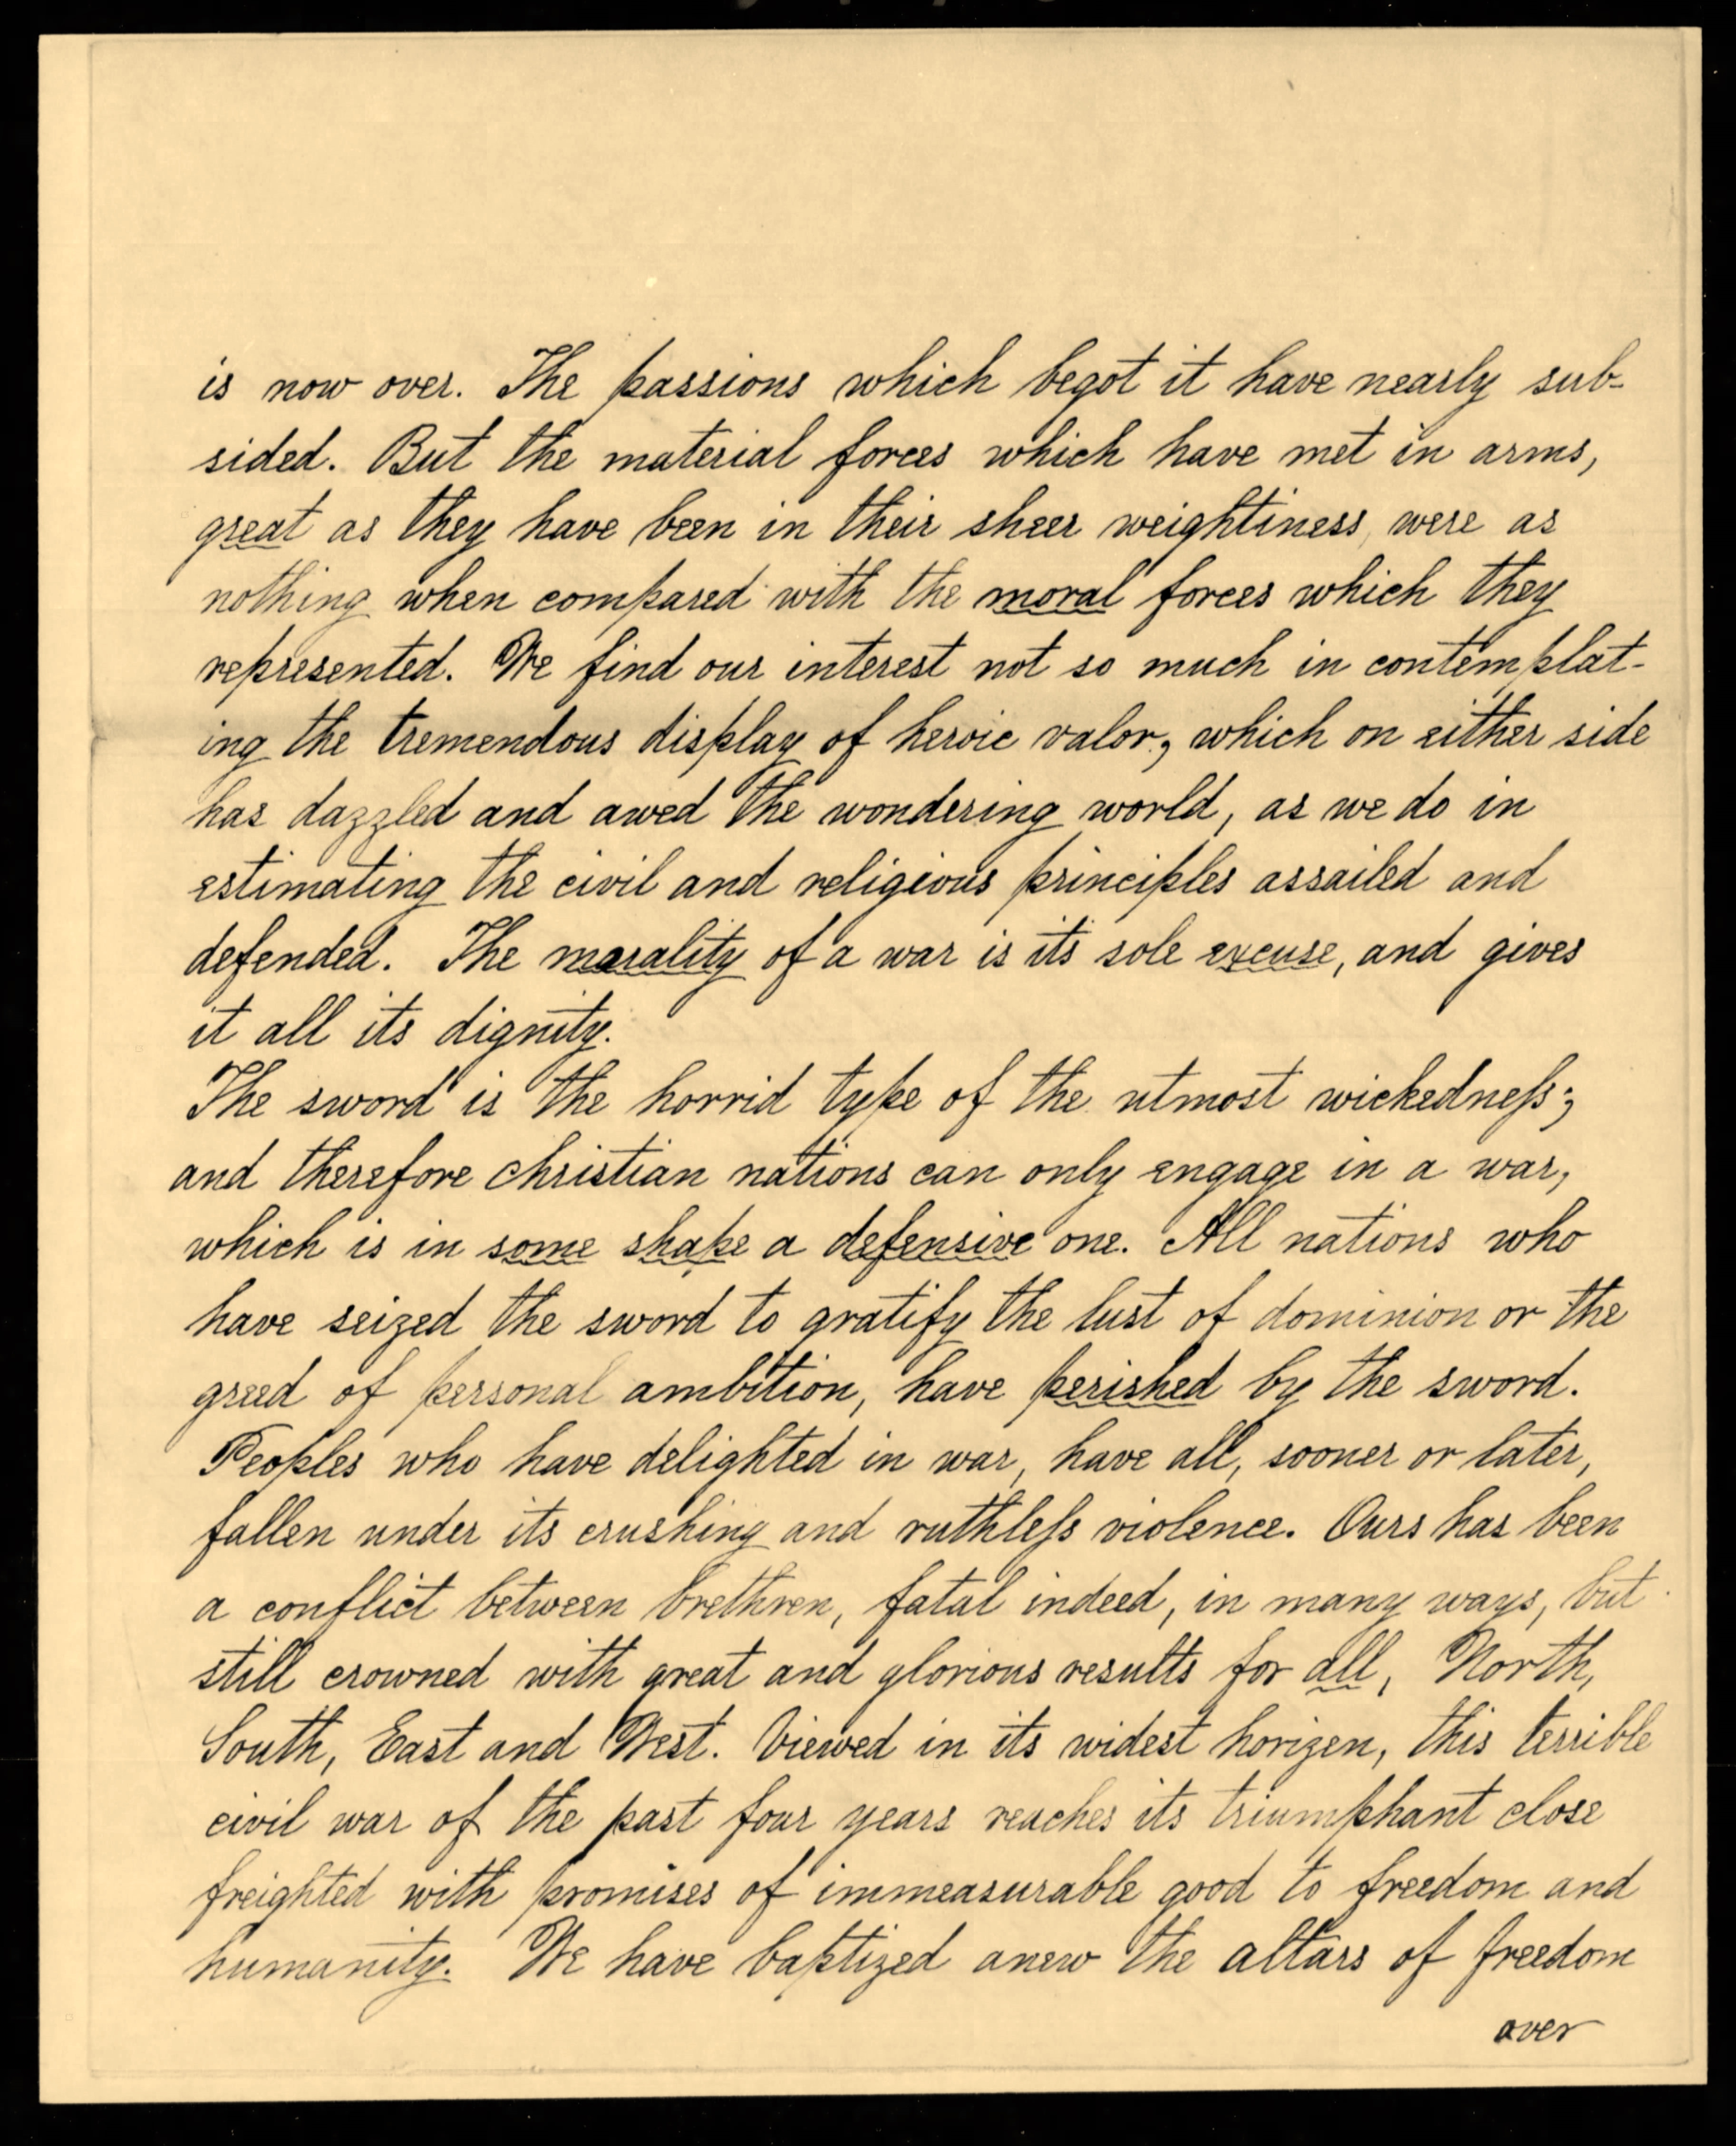 is now over. The passions which begot it have nearly sub-
sided. But the material forces which have met in arms,
great as they have been in their sheer weightiness, were as
nothing when compared with the moral forces which they
represented. We find our interest not so much in contemplat-
ing the tremendous display of heroic valor, which on either side
has dazzled and awed the wondering world, as we do in
estimating the civil and religious principles assailed and
defended. The morality of a war is its sole excuse, and gives
it all its dignity.
The sword is the horrid type of the utmost wickedneſs;
and therefore christian nations can only engage in a war,
which is in some shape a defensive one. All nations who
have seized the sword to gratify the lust of dominion or the
greed of personal ambition, have perished by the sword.
Peoples who have delighted in war, have all, sooner or later,
fallen under its crushing and ruthleſs violence. Ours has been
a conflict between brethren, fatal indeed, in many ways, but
still crowned with great and glorious results for all, North,
South, East and West. Viewed in its widest horizen, this terrible
civil war of the past four years reaches its triumphant close
freighted with promises of immeasurable good to freedom and
humanity. We have baptized anew the altars of freedom
over